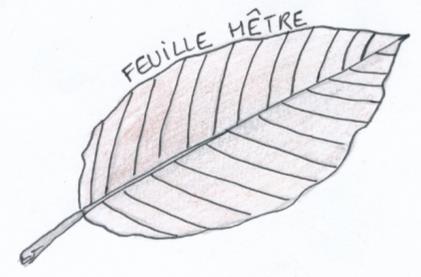 FEUILLE HÊTRE